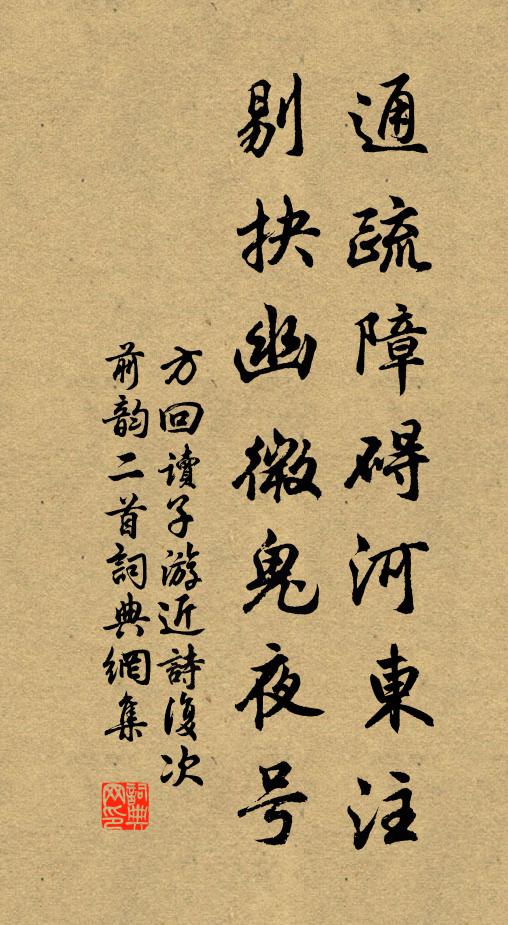 通疏障碍河東注
剔抉幽微鬼夜号
方回讀子游近詩復次
前韵二首詞典網集
詞典
网印